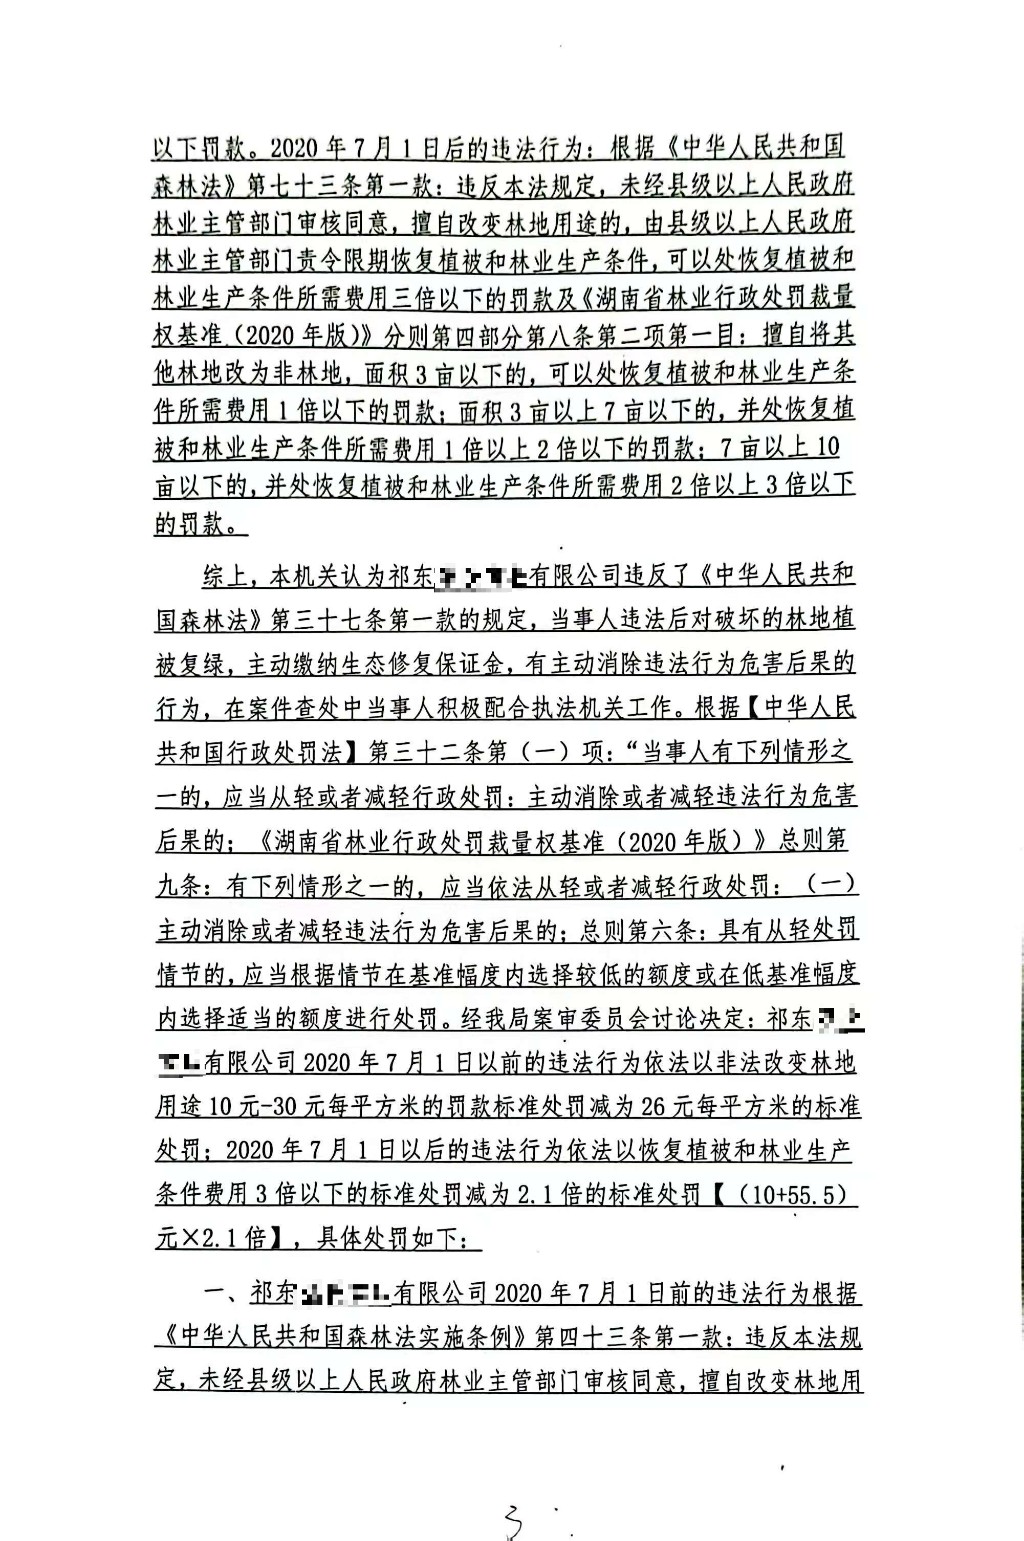 以下罚款。2020年7月1日后的违法行为：根据《中华人民共和国
森林法》第七十三条第一款：违反本法规定，未经县级以上人民政府
林业主管部门审核同意，擅自改变林地用途的，由县级以上人民政府
林业主管部门责令限期恢复植被和林业生产条件，可以处恢复植被和
林业生产条件所需费用三倍以下的罚款及《湖南省林业行政处罚裁量
权基准（2020年版）》分则第四部分第八条第二项第一目：擅自将其
他林地改为非林地，面积3亩以下的，可以处恢复植被和林业生产条
件所需费用1倍以下的罚款；面积3亩以上7亩以下的，并处恢复植
被和林业生产条件所需费用1倍以上2倍以下的罚款；7亩以上10
亩以下的，并处恢复植被和林业生产条件所需费用2倍以上3倍以下
的罚款。
综上，本机关认为祁东有限公司违反了《中华人民共和
国森林法》第三十七条第一款的规定，当事人违法后对破坏的林地植
被复绿，主动缴纳生态修复保证金，有主动消除违法行为危害后果的
行为，在案件查处中当事人积极配合执法机关工作。根据【中华人民
共和国行政处罚法】第三十二条第（一）项：“当事人有下列情形之
一的，应当从轻或者减轻行政处罚：主动消除或者减轻违法行为危害
后果的；《湖南省林业行政处罚裁量权基准（2020年版）》总则第
九条：有下列情形之一的，应当依法从轻或者减轻行政处罚：（一）
主动消除或者减轻违法行为危害后果的；总则第六条：具有从轻处罚
情节的，应当根据情节在基准幅度内选择较低的额度或在低基准幅度
内选择适当的额度进行处罚。经我局案审委员会讨论决定：祁东
有限公司2020年7月1日以前的违法行为依法以非法改变林地
用途10元-30元每平方米的罚款标准处罚减为26元每平方米的标准
处罚；2020年7月1日以后的违法行为依法以恢复植被和林业生产
条件费用3倍以下的标准处罚减为2.1倍的标准处罚【（10+55.5）
元×2.1倍】，具体处罚如下：
一、祁东有限公司2020年7月1日前的违法行为根据
《中华人民共和国森林法实施条例》第四十三条第一款：违反本法规
定，未经县级以上人民政府林业主管部门审核同意，擅自改变林地用
3